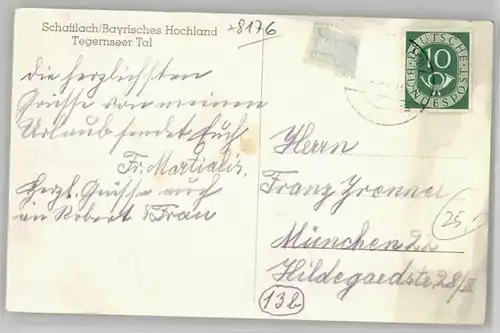 Schaftlach/Bayrisches Hochland
Tegernseer Tal
*8176
die herzlichsten
Grüsse von meinem
Urlaub sendet Euch
Fr. Martialis.
Herzl. Grüsse auch
an Robert & Frau
DEUTSCHE
BUNDESPOST
10
Herrn
Franz
München 2
Hildegardstr. 28/II
25,-
13b